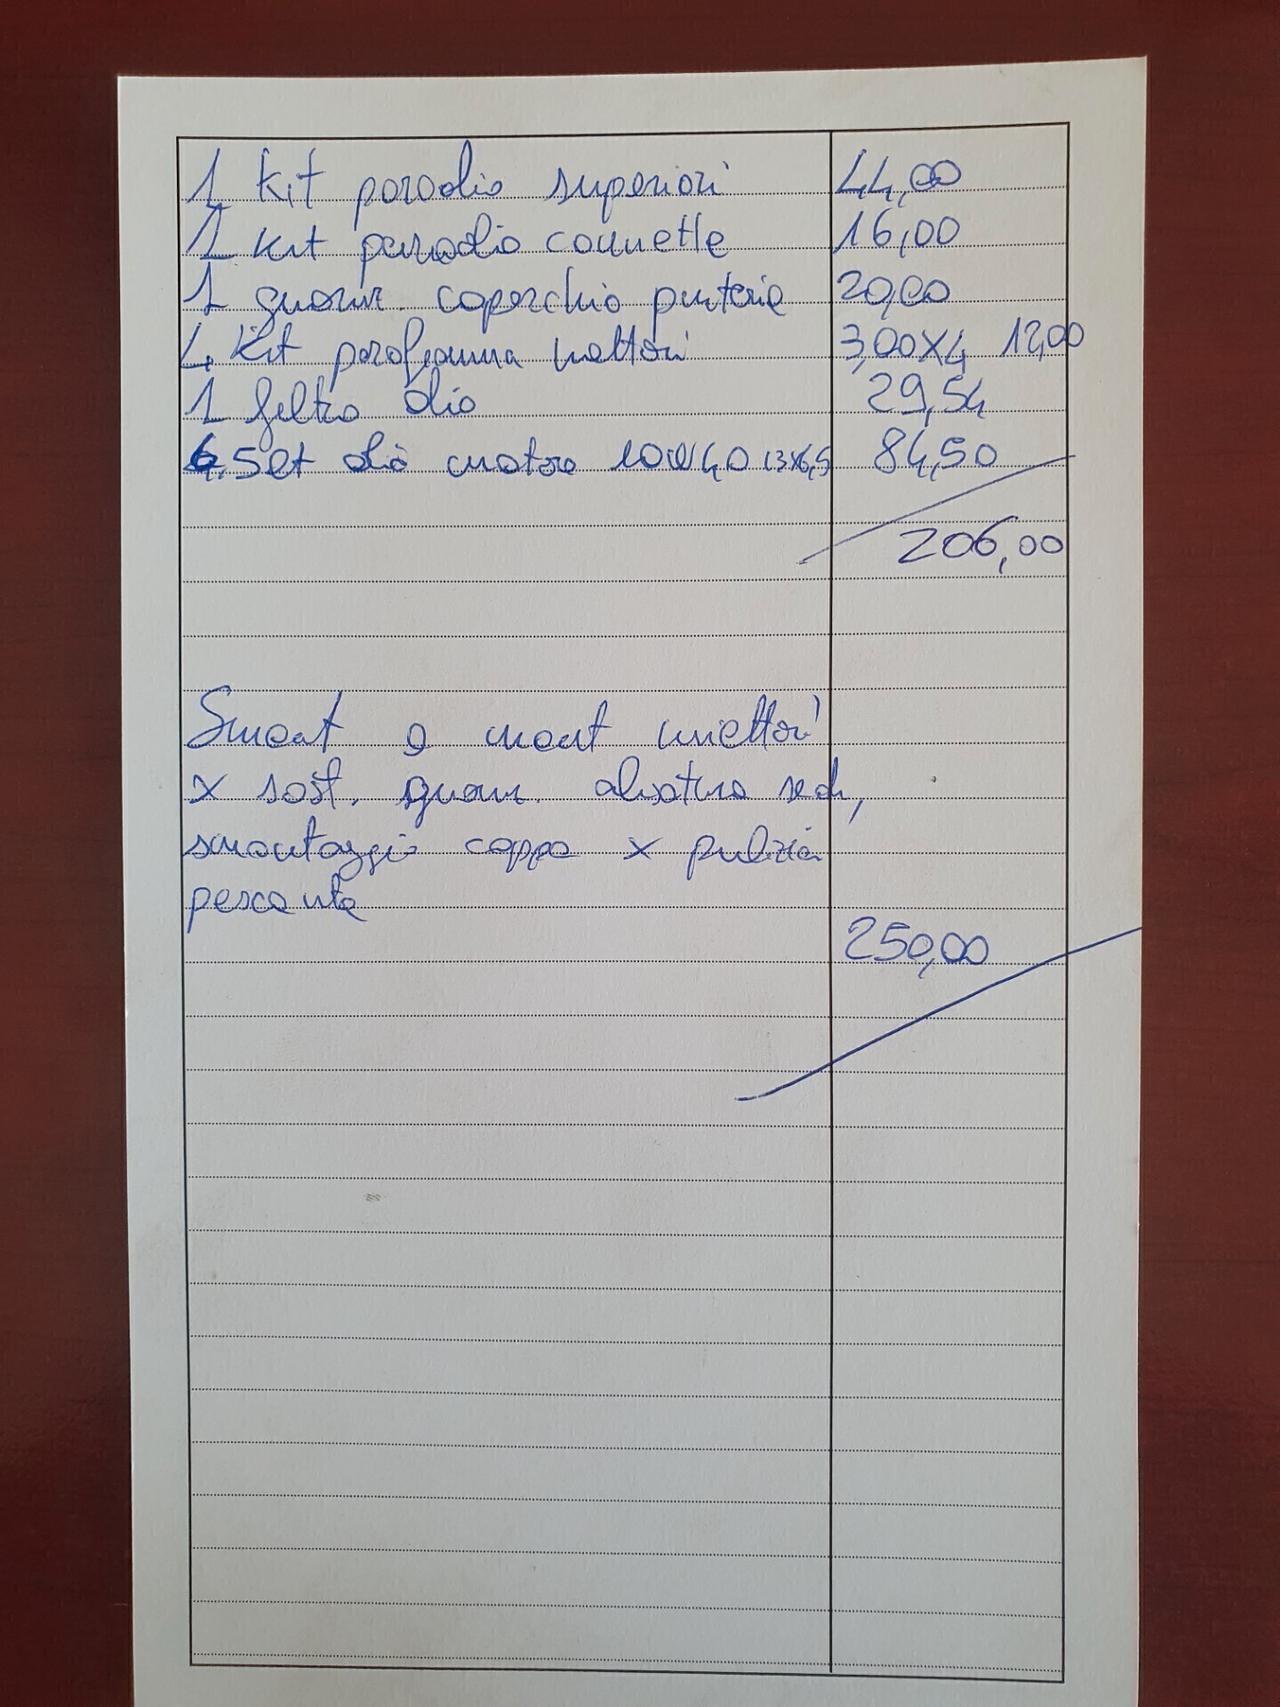 1 Kit paraolio superiori 44,00
1 Kit paraolio cannette 16,00
1 guarniz. coperchio punterie 20,00
4 Kit parafiamma iniettori 3,00x4 12,00
1 filtro olio 29,54
6,5 Lt olio motore 10W40 13x6,5 84,50
206,00
Smont e mont iniettori
x sost. guarn. alsatura sedi,
smontaggio coppa x pulizia
pescante
250,00